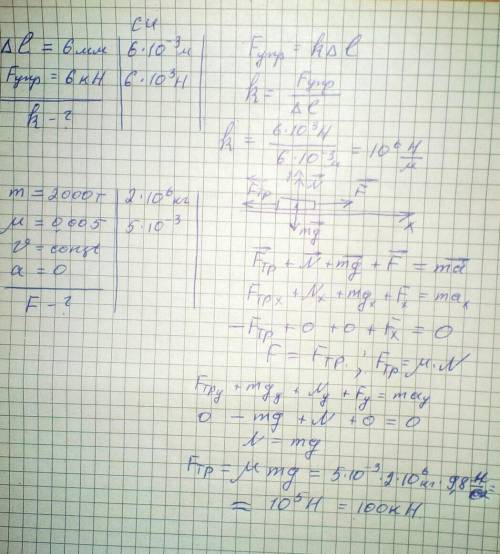 СИ
Δl = 6мм | 6·10⁻³м
Fупр = 6кН | 6·10³Н
k - ?
Fупр = kΔl
k = Fупр / Δl
k = 6·10³Н / 6·10⁻³м = 10⁶ Н/м
m = 2000т | 2·10⁶кг
μ = 0,005 | 5·10⁻³
v = const
a = 0
F - ?
Fтр N F
x
mg
Fтр + N + mg + F = ma
Fтрx + Nx + mgx + Fx = max
-Fтр + 0 + 0 + Fx = 0
F = Fтр ; Fтр = μ·N
Fтрy + mgy + Ny + Fy = may
0 - mg + N + 0 = 0
N = mg
Fтр = μmg = 5·10⁻³·2·10⁶кг·9,8 Н/кг =
= 10⁵Н = 100кН